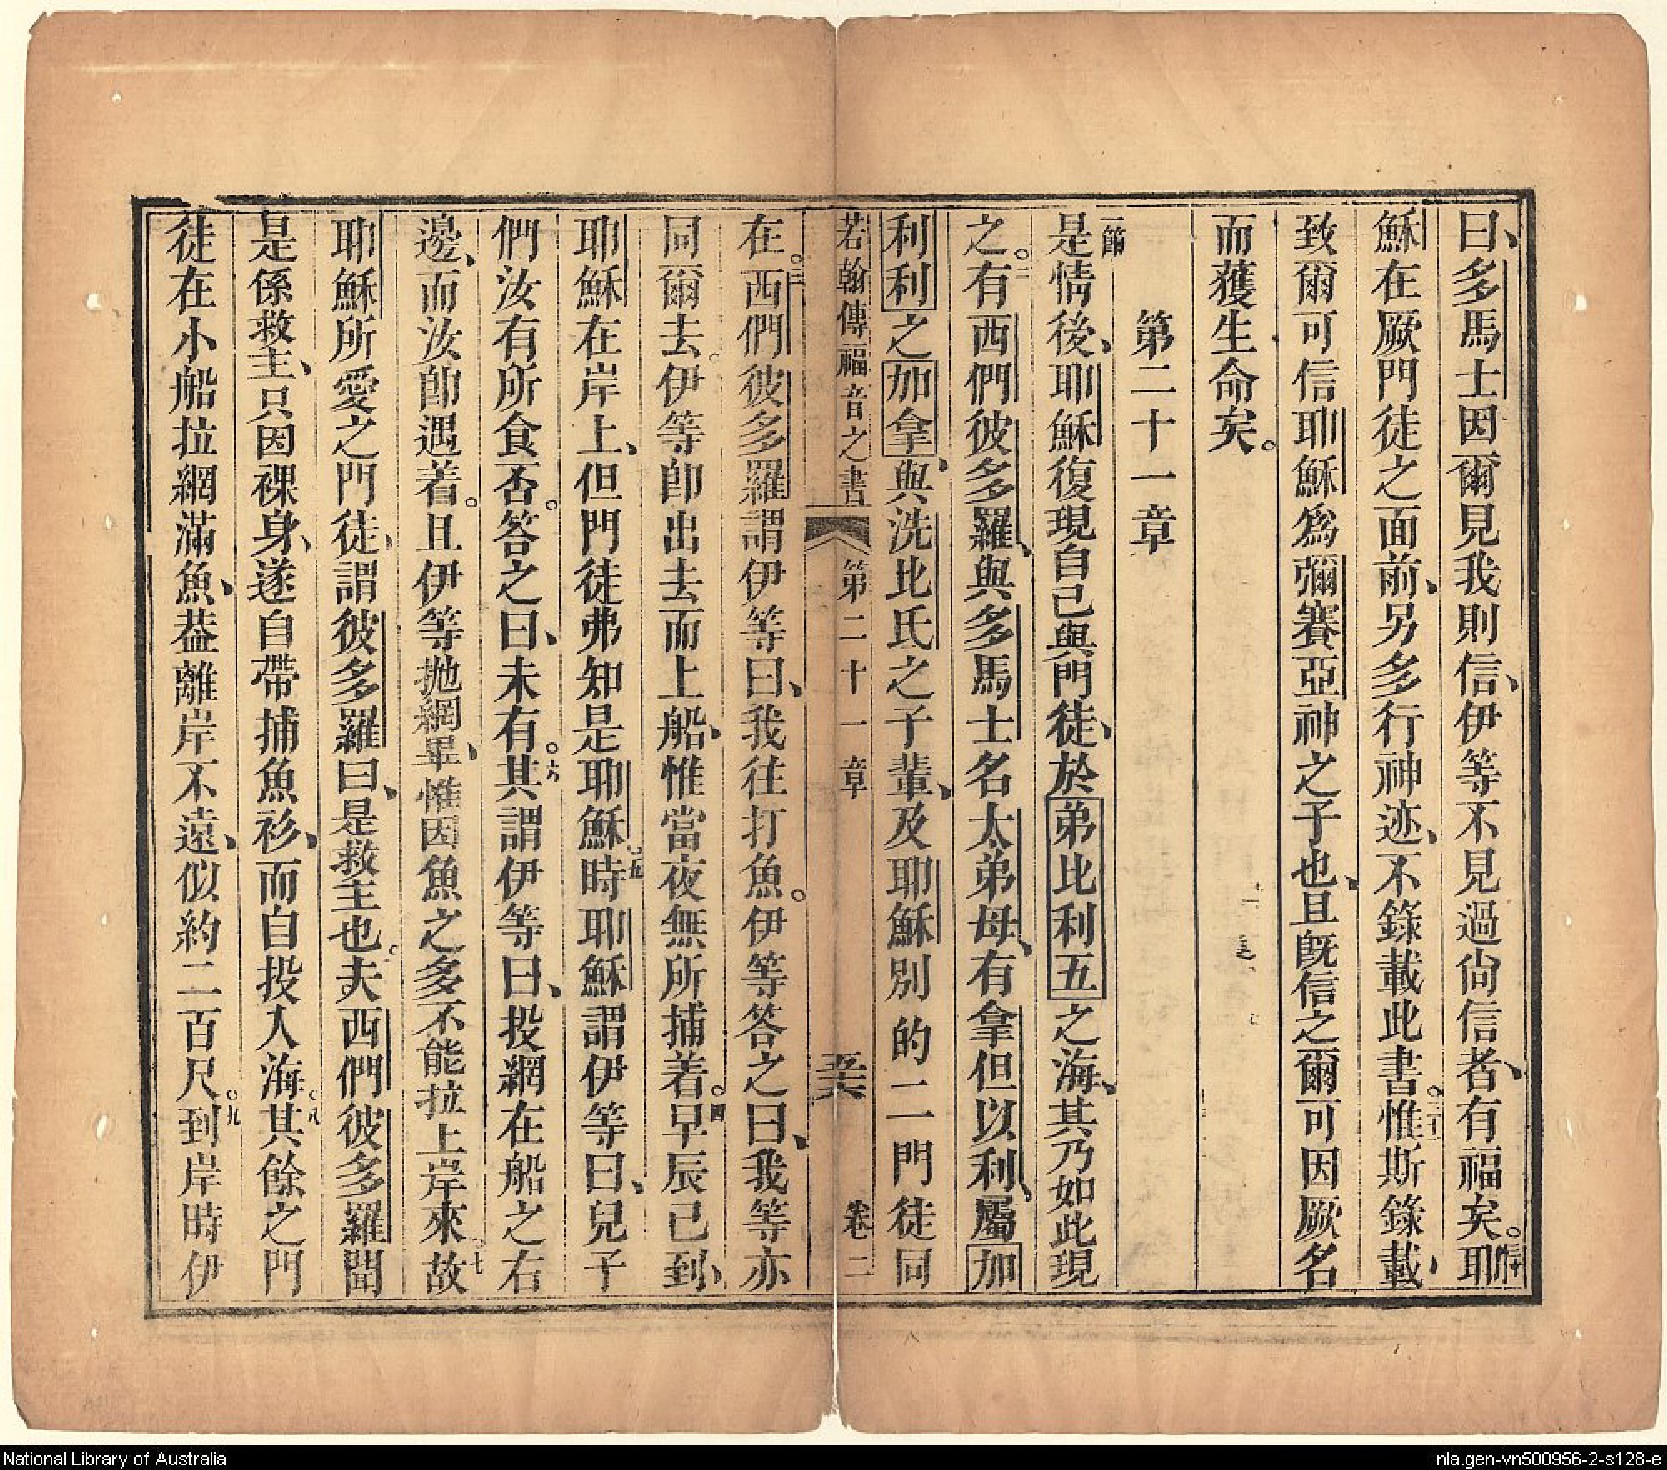 曰、多馬士因爾見我則信、伊等不見過尙信者、有福矣。三十耶
穌在厥門徒之面前、另多行神迹、不錄載此書。三十一惟斯錄載、
致爾可信耶穌爲彌賽亞神之子也、且旣信之爾可因厥名
而獲生命矣。
第二十一章
一節是情後、耶穌復現自己與門徒、於弟比利五之海、其乃如此現
之。二有西們彼多羅、與多馬士名太弟母、有拿但以利、屬加
利利之加拿、與洗比氏之子輩、及耶穌別的二門徒同
若翰傳福音之書 第二十一章 卷二
在。三西們彼多羅謂伊等曰、我往打魚。伊等答之曰、我等亦
同爾去。伊等卽出去而上船、惟當夜無所捕着。四早辰已到、
耶穌在岸上、但門徒弗知是耶穌。五時耶穌謂伊等曰、兒子
們汝有所食否。答之曰、未有。六其謂伊等曰、投網在船之右
邊、而汝卽遇着。且伊等抛網畢、惟因魚之多不能拉上岸來。七故
耶穌所愛之門徒、謂彼多羅曰、是救主也。夫西們彼多羅聞
是係救主、只因裸身、遂自帶捕魚衫、而自投入海。八其餘之門
徒在小船拉網滿魚、葢離岸不遠、似約二百尺。九到岸時伊
National Library of Australia
nla.gen-vn500956-2-s128-e